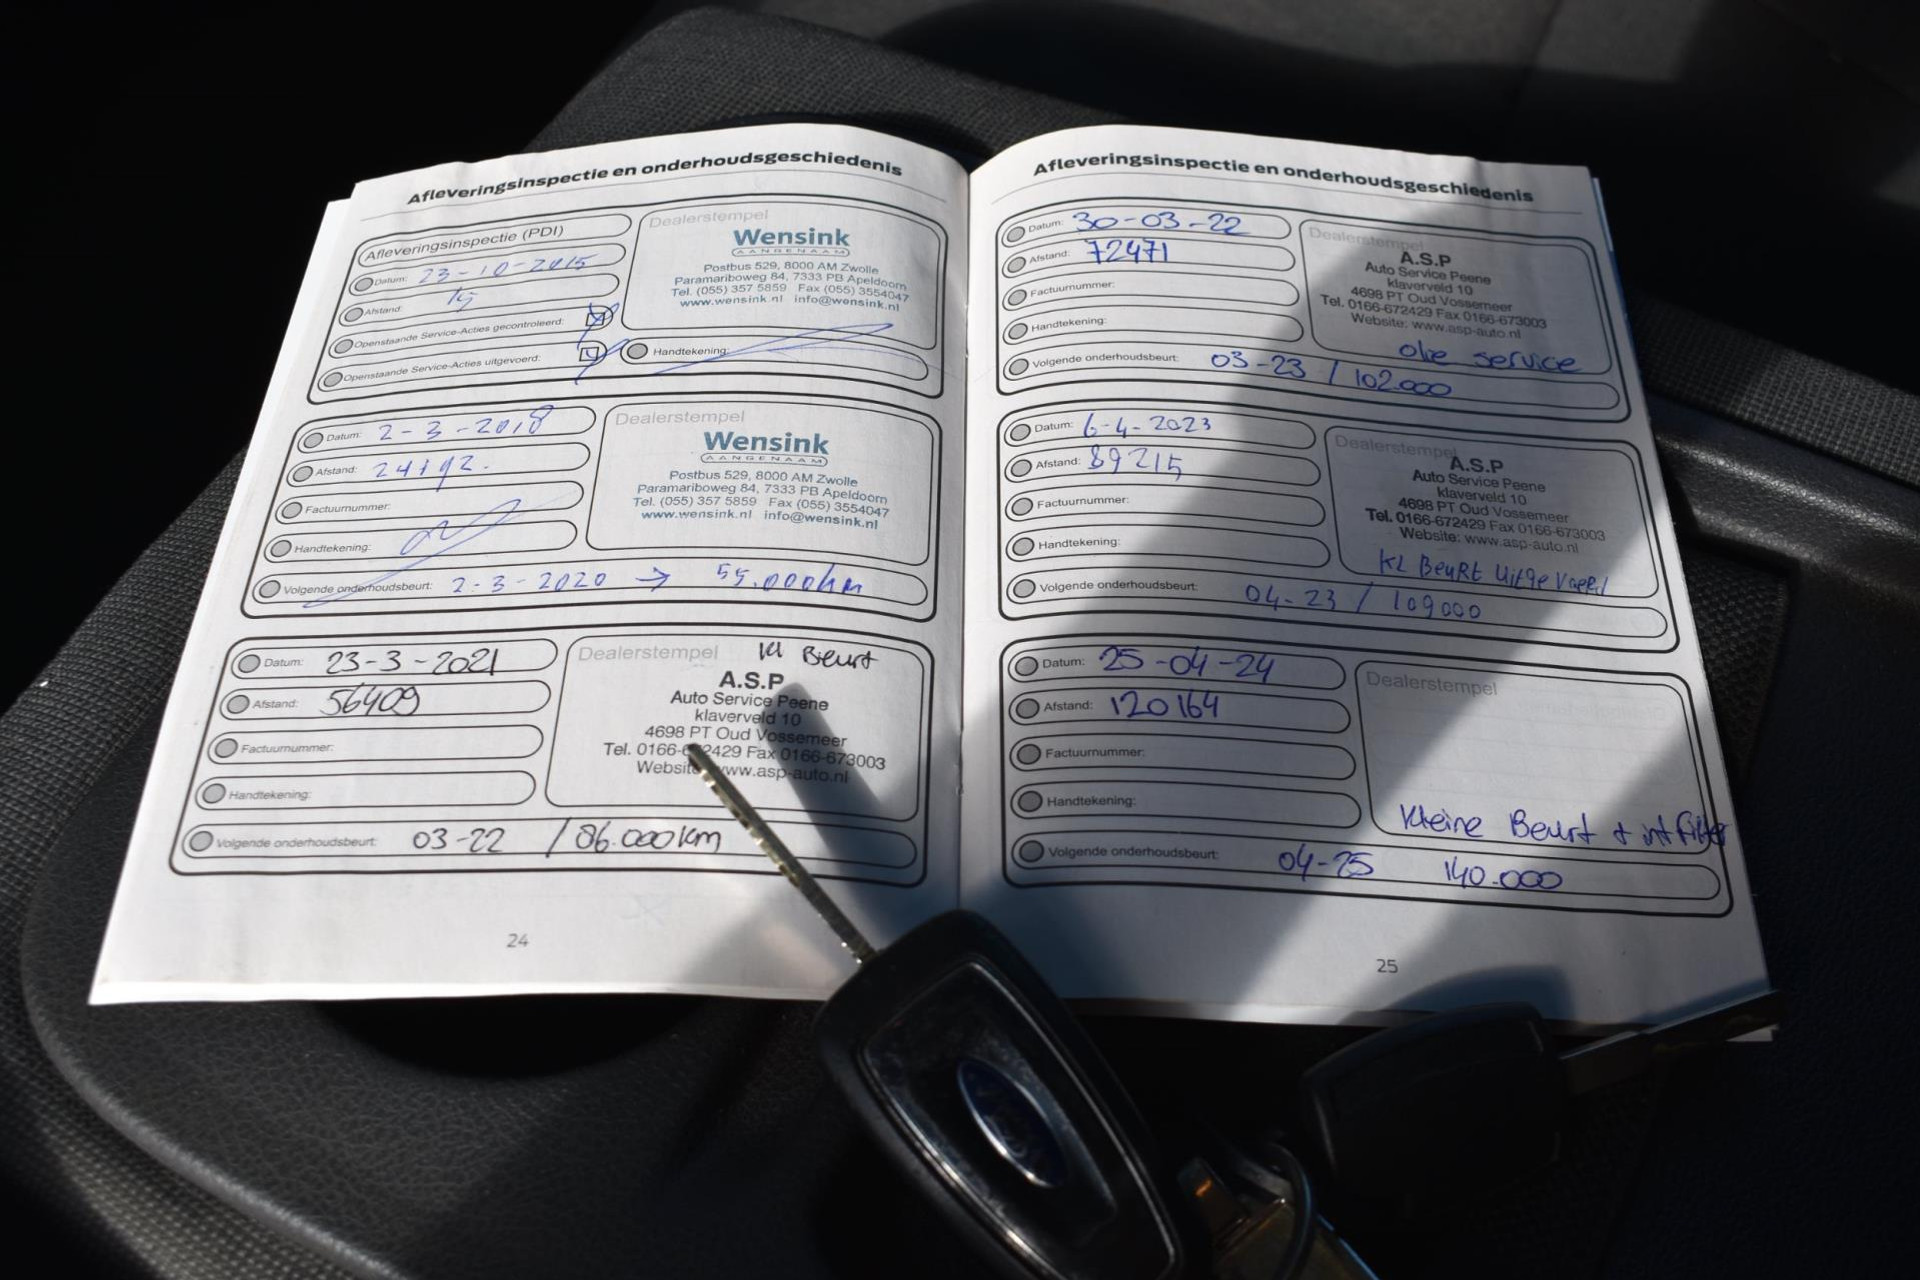 Afleveringsinspectie en onderhoudsgeschiedenis
Afleveringsinspectie (PDI)
Datum: 23-10-2015
Afstand: 15
Openstaande Service-Acties gecontroleerd:
Openstaande Service-Acties uitgevoerd:
Dealerstempel
Wensink
AANGENAAM
Postbus 529, 8000 AM Zwolle
Paramariboweg 84, 7333 PB Apeldoorn
Tel. (055) 357 5859 Fax (055) 3554047
www.wensink.nl info@wensink.nl
Handtekening:
Datum: 2-3-2018
Afstand:
Factuurnummer:
Handtekening:
Volgende onderhoudsbeurt: 2-3-2020 → 55.000km
Dealerstempel
Wensink
AANGENAAM
Postbus 529, 8000 AM Zwolle
Paramariboweg 84, 7333 PB Apeldoorn
Tel. (055) 357 5859 Fax (055) 3554047
www.wensink.nl info@wensink.nl
Datum: 23-3-2021
Afstand: 56409
Factuurnummer:
Handtekening:
Volgende onderhoudsbeurt: 03-22 / 86.000km
Dealerstempel Kl Beurt
A.S.P
Auto Service Peene
klaverveld 10
4698 PT Oud Vossemeer
Tel. 0166-672429 Fax 0166-673003
Website: www.asp-auto.nl
24
Afleveringsinspectie en onderhoudsgeschiedenis
Datum: 30-03-22
Afstand: 72471
Factuurnummer:
Handtekening:
Volgende onderhoudsbeurt: 03-23 / 102.000
Dealerstempel
A.S.P
Auto Service Peene
klaverveld 10
4698 PT Oud Vossemeer
Tel. 0166-672429 Fax 0166-673003
Website: www.asp-auto.nl
olie service
Datum: 6-4-2023
Afstand: 89215
Factuurnummer:
Handtekening:
Volgende onderhoudsbeurt: 04-23 / 109000
Dealerstempel
A.S.P
Auto Service Peene
klaverveld 10
4698 PT Oud Vossemeer
Tel. 0166-672429 Fax 0166-673003
Website: www.asp-auto.nl
KL BeuRt Uitgevoerd
Datum: 25-04-24
Afstand: 120164
Factuurnummer:
Handtekening:
Volgende onderhoudsbeurt: 04-25 140.000
Dealerstempel
Kleine Beurt + int filter
25